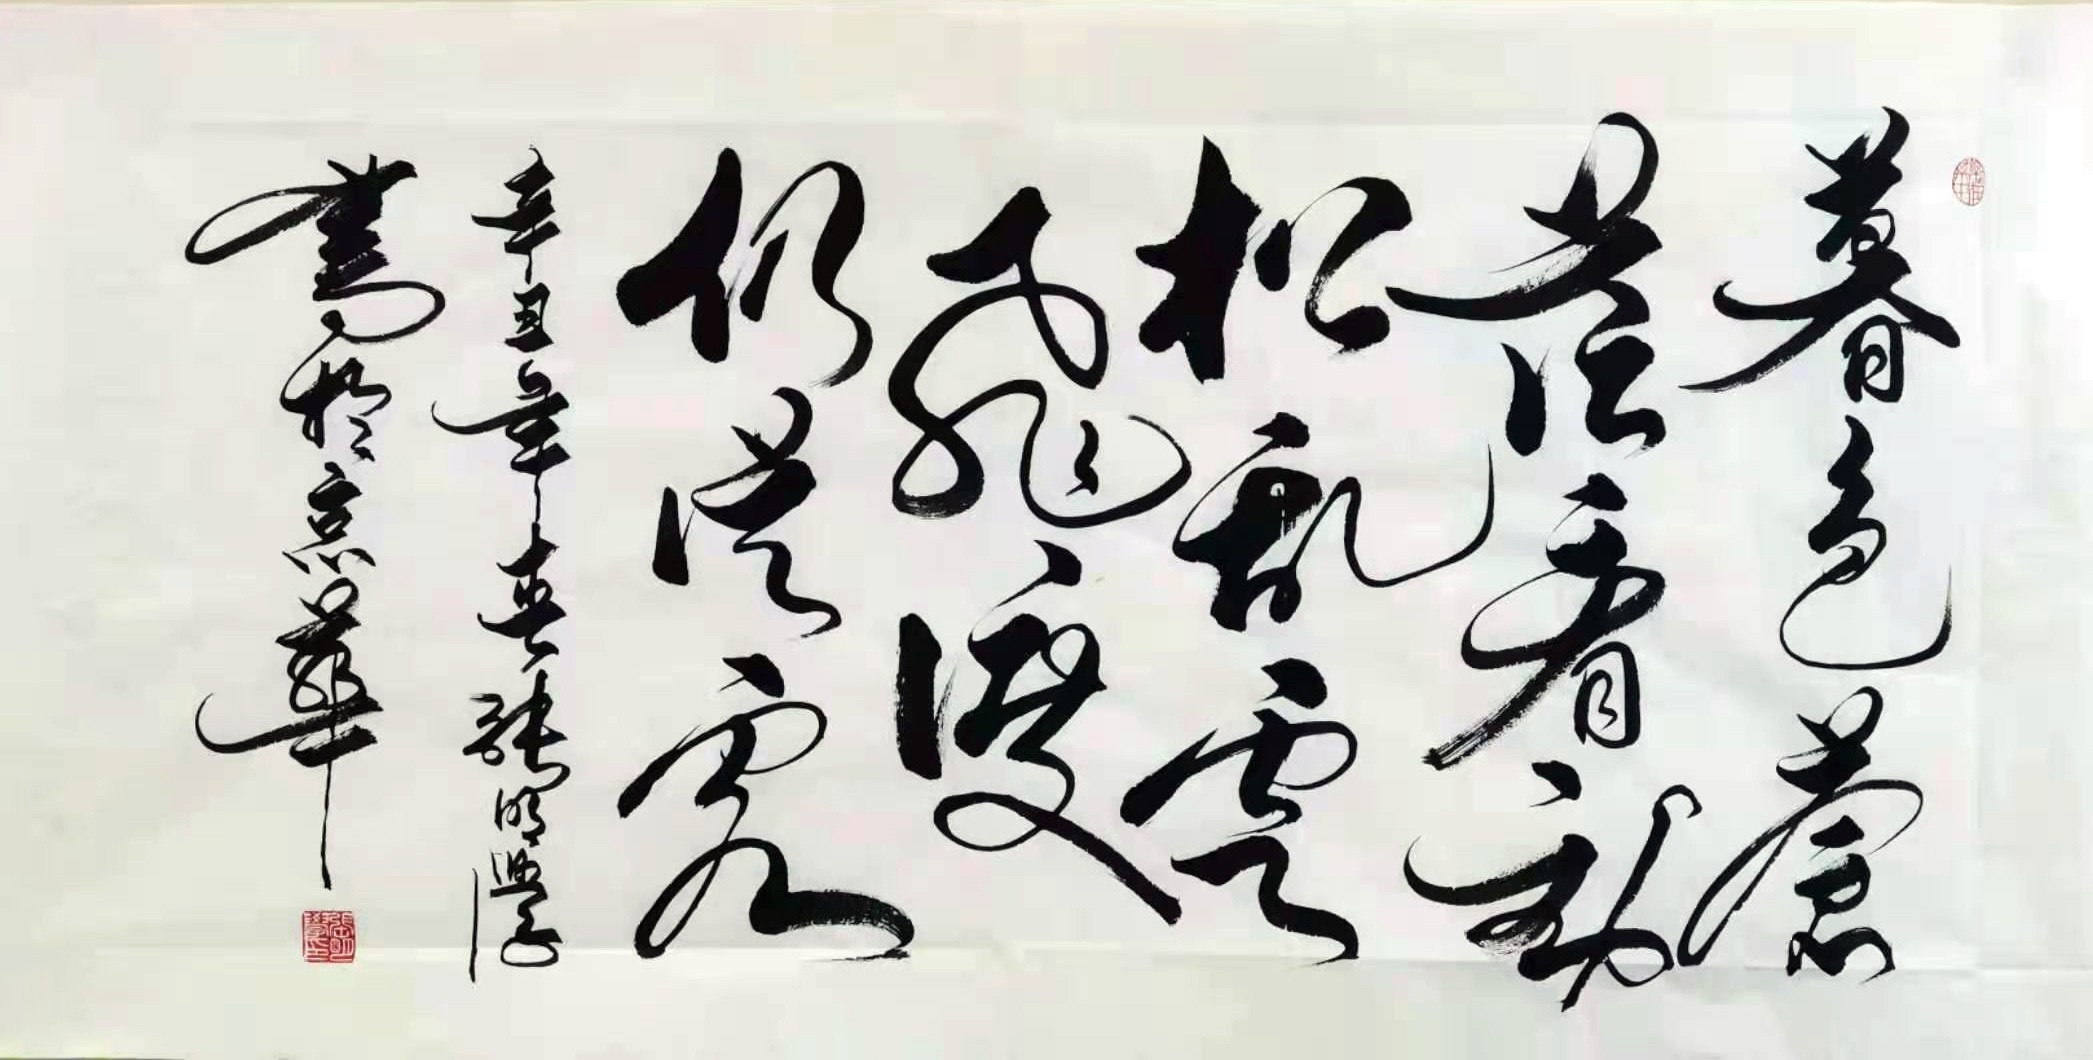 暮色蒼
茫看劲
松乱雲
飛渡
仍從容
辛丑年春張明學
書於京華